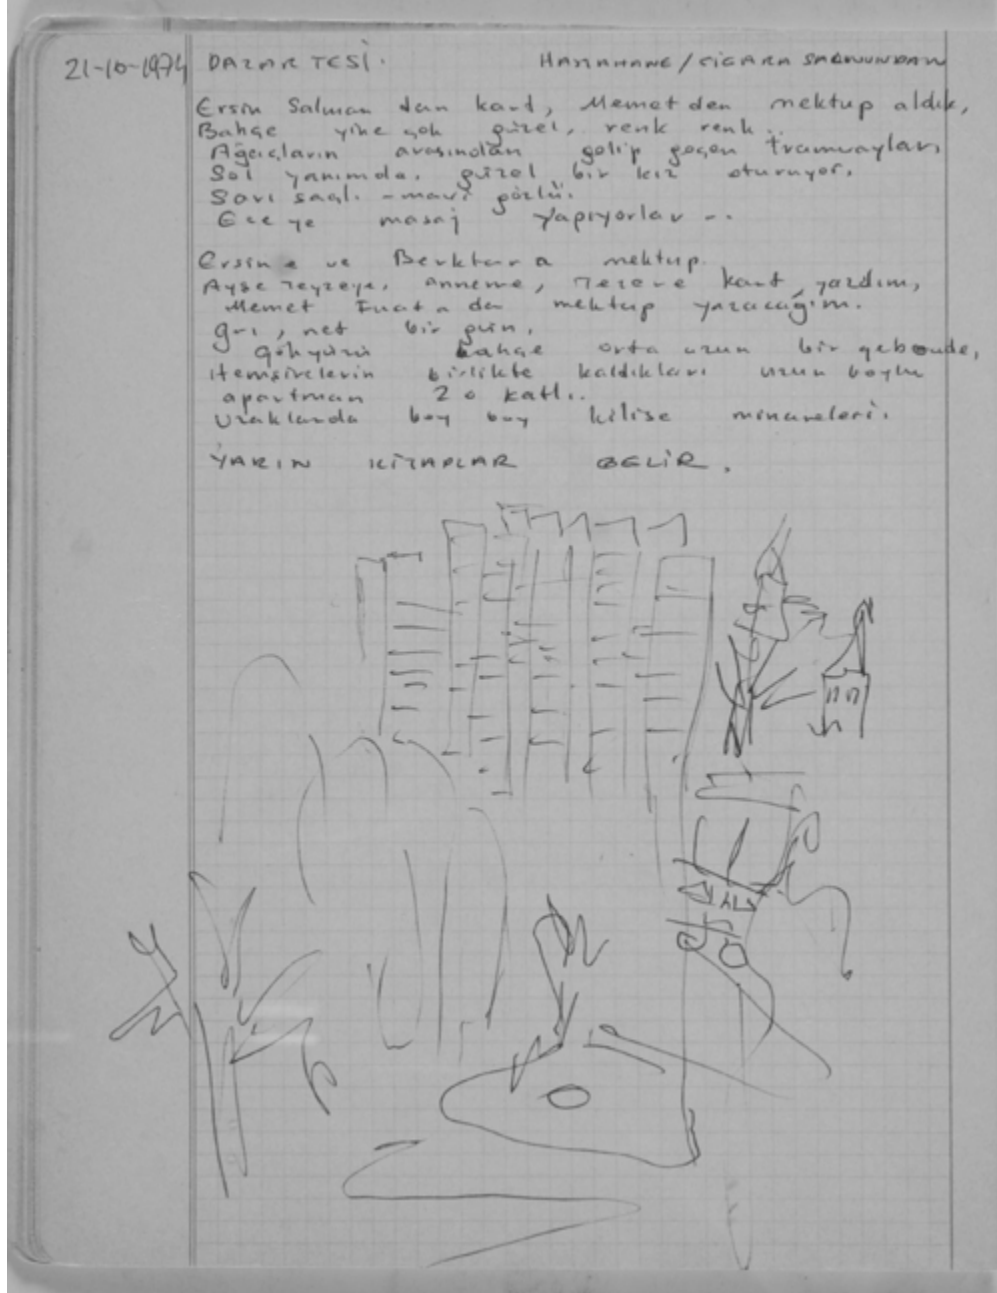 21-10-1974 PAZARTESİ. HASTAHANE/CİGARA SALONUNDAN
Ersin Salman dan kart, Memet den mektup aldık,
Bahçe yine çok güzel, renk renk..
Ağaçların arasından gelip geçen tramvayları
Sol yanımda. güzel bir kız oturuyor.
Sarı saçl. -mavi gözlü.
Ece ye masaj yapıyorlar ..
Ersin e ve Berktara mektup.
Ayşe Teyzeye, anneme, Tezere kart yazdım,
Memet Fuat a da mektup yazacağım.
gri, net bir gün.
gökyüzü bahçe orta uzun bir
Hemşirelerin birlikte kaldıkları uzun boylu
apartman 20 katl..
Uzaklarda boy boy kilise minareleri.
YARIN KİTAPLAR GELİR.